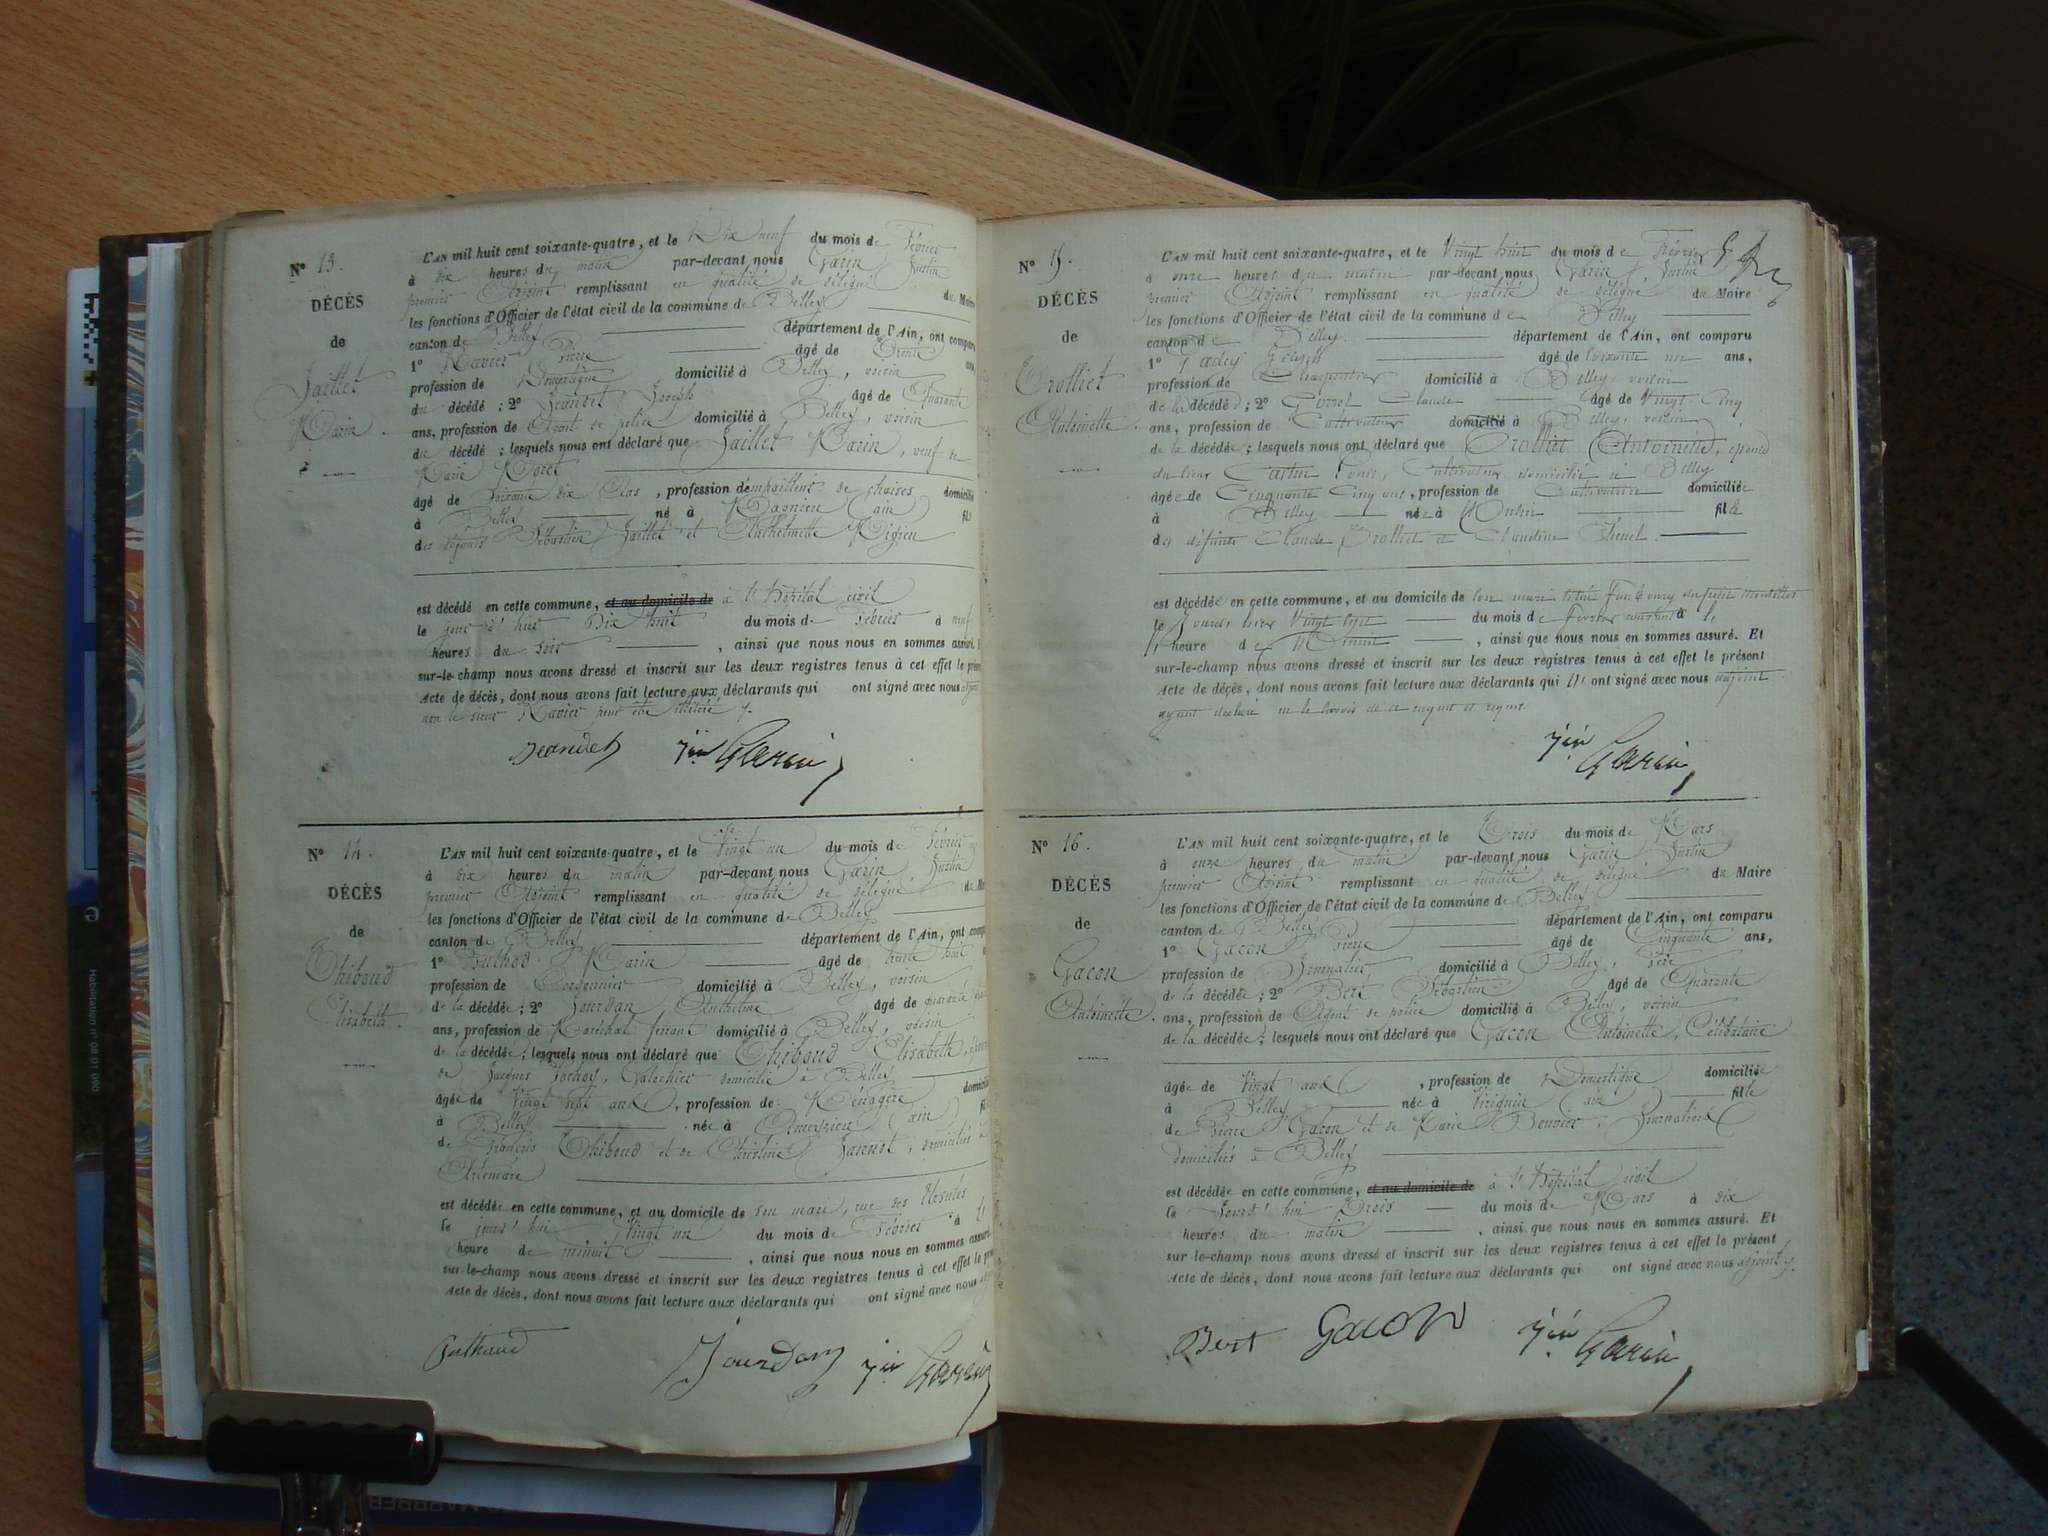 Nº 13.
DÉCÈS
de
Jaillet
Marin.
L'AN mil huit cent soixante-quatre, et le Dix neuf du mois de Février
à dix heures du matin par-devant nous Garin Justin
premier Adjoint remplissant en qualité de délégué du Maire
les fonctions d'Officier de l'état civil de la commune de Belley
canton de Belley département de l'Ain, ont comparu
1º Navier Pierre âgé de Trente ans,
profession de Domestique domicilié à Belley, voisin
du décédé ; 2º Jeandet Joseph âgé de Quarante
ans, profession de Agent de police domicilié à Belley, voisin
du décédé ; lesquels nous ont déclaré que Jaillet Marin, veuf de
Marie Moret
âgé de Soixante dix ans, profession d'empailleur de chaises domicilié
à Belley né à Magnieu (ain) fils
des défunts Sébastien Jaillet et Anthelmette
est décédé en cette commune, et au domicile de à l'hôpital civil
le jour d'hier Dix huit du mois de Février à neuf
heures du soir, ainsi que nous nous en sommes assuré. E
sur-le-champ nous avons dressé et inscrit sur les deux registres tenus à cet effet le prése
Acte de décès, dont nous avons fait lecture aux déclarants qui ont signé avec nous adjoint
non le sieur Navier pour être illétéré
Jeandet Jin Garin
Nº 14.
DÉCÈS
de
Thiboud
Elisabeth.
L'AN mil huit cent soixante-quatre, et le Vingt un du mois de Février
à dix heures du matin par-devant nous Garin Justin
premier Adjoint remplissant en qualité de délégué du M
les fonctions d'Officier de l'état civil de la commune de Belley
canton de Belley département de l'Ain, ont comp
1º Marin âgé de trente huit
profession de Cordonnier domicilié à Belley, voisin
de la décédée ; 2º Jourdan Anthelme âgé de quarante
ans, profession de Maréchal ferrant domicilié à Belley, voisin
de la décédée ; lesquels nous ont déclaré que Thiboud Elisabeth,
de Jacques domicilié à Belley
âgée de Vingt sept ans, profession de Ménagère domicili
à Belley née à (ain) fil
de François Thiboud et de Christine domiciliés à
Artemare
est décédée en cette commune, et au domicile de son mari, rue des Ursules
le jourd'hui Vingt un du mois de Février à
heure de minuit, ainsi que nous nous en sommes assuré
sur-le-champ nous avons dressé et inscrit sur les deux registres tenus à cet effet le pré
Acte de décès, dont nous avons fait lecture aux déclarants qui ont signé avec nous
Jourdan Jin Garin
Nº 15.
DÉCÈS
de
Trolliet
Antoinette.
L'AN mil huit cent soixante-quatre, et le Vingt huit du mois de Février
à onze heures du matin par-devant nous Garin Justin
premier Adjoint remplissant en qualité de délégué du Maire
les fonctions d'Officier de l'état civil de la commune de Belley
canton de Belley département de l'Ain, ont comparu
1º âgé de soixante un ans,
profession de Charpentier domicilié à Belley voisin
de la décédée ; 2º Claude âgé de Vingt Cinq
ans, profession de Cultivateur domicilié à Belley, voisin
de la décédée ; lesquels nous ont déclaré que Trolliet Antoinette, épouse
du sieur Louis, Cultivateur domicilié à Belley
âgée de Cinquante Cinq ans, profession de Cultivatrice domiciliée
à Belley née à fille
des défunts Claude Trolliet et Claudine
est décédée en cette commune, et au domicile de son mari
le jour d'hier Vingt sept du mois de Février courant à
heure de Minuit, ainsi que nous nous en sommes assuré. Et
sur-le-champ nous avons dressé et inscrit sur les deux registres tenus à cet effet le présent
Acte de décès, dont nous avons fait lecture aux déclarants qui n' ont signé avec nous adjoint
ayant déclaré ne le savoir de ce enquis et requis
Jin Garin
Nº 16.
DÉCÈS
de
Gacon
Antoinette.
L'AN mil huit cent soixante-quatre, et le Trois du mois de Mars
à onze heures du matin par-devant nous Garin Justin
premier Adjoint remplissant en qualité de délégué du Maire
les fonctions d'Officier de l'état civil de la commune de Belley
canton de Belley département de l'Ain, ont comparu
1º Gacon Pierre âgé de Cinquante ans,
profession de Journalier domicilié à Belley, père
de la décédée ; 2º Bert Sébastien âgé de Quarante
ans, profession de Agent de police domicilié à Belley, voisin
de la décédée ; lesquels nous ont déclaré que Gacon Antoinette, Célibataire
âgée de Vingt ans, profession de Domestique domiciliée
à Belley née à Virignin (ain) fille
de Pierre Gacon et de Marie Bouvier, Journaliers
domiciliés à Belley
est décédée en cette commune, et au domicile de à l'hôpital civil
le Jourd'hui Trois du mois de Mars à dix
heures du matin, ainsi que nous nous en sommes assuré. Et
sur-le-champ nous avons dressé et inscrit sur les deux registres tenus à cet effet le présent
Acte de décès, dont nous avons fait lecture aux déclarants qui ont signé avec nous adjoint
Bert Gacon Jin Garin
Habilitation nº 08 01 090